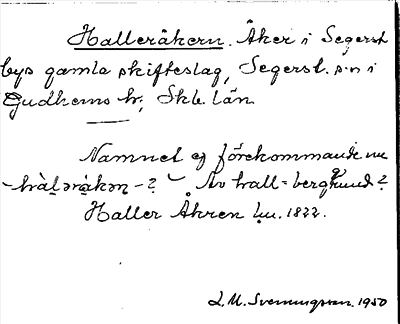 Halleråkern. Åker i Segerst.
bys gamla skifteslag, Segerst. s:n i
Gudhems hr, Skb. län.
Namnet ej förekommande nu
-hàlərákən-? Av hall = berggrund?
Haller Åkren hu. 1822.
L. M. Svenungsson. 1950